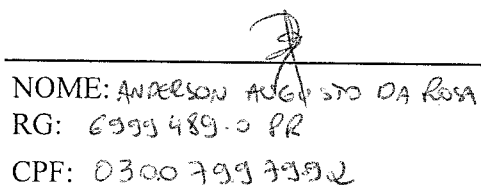 NOME: ANDERSON AUGUSTO DA ROSA
RG: 6999489-0 PR
CPF: 03007997992